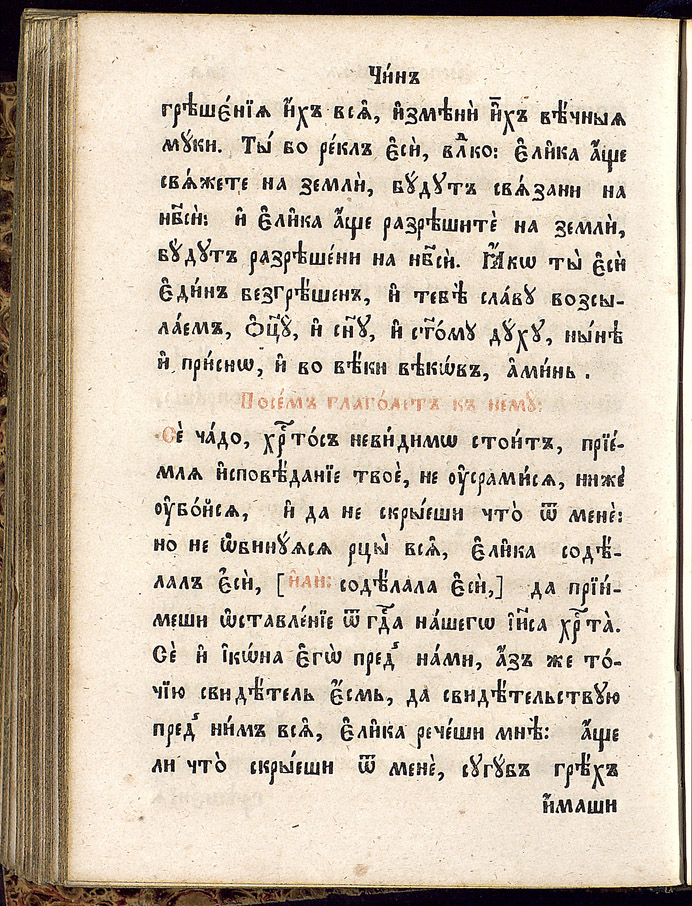 Чи́нъ
грѣше́нїѧ и҆́хъ всѧ̑, и҆змѣнѝ и҆̀хъ вѣ́чныѧ
мꙋ́ки. Ты́ бо ре́клъ є҆сѝ, влⷣко: є҆ли̑ка а҆́ще
свѧ́жете на землѝ, бꙋ́дꙋтъ свѧ̑зани на
нб҃сѝ: и҆ є҆ли̑ка а҆́ще разрѣшитѐ на землѝ,
бꙋ́дꙋтъ разрѣше́ни на нб҃сѝ. Ꙗ҆́кѡ ты̀ є҆сѝ
є҆ди́нъ безгрѣ́шенъ, и҆ тебѣ̀ сла́вꙋ возсы-
ла́емъ, ѻ҆ц҃ꙋ̀, и҆ сн҃ꙋ, и҆ ст҃о́мꙋ дꙋ́хꙋ, ны́нѣ
и҆ при́снѡ, и҆ во вѣ́ки вѣкѡ́въ, а҆ми́нь.
Посе́мъ глаго́летъ къ немꙋ̀:
Сѐ ча́до, хрⷭ҇то́съ неви́димѡ стои́тъ, прїе́-
млѧ и҆сповѣ́данїе твоѐ, не ᲂу҆срами́сѧ, нижѐ
ᲂу҆бо́йсѧ, и҆ да не скры́еши что̀ ѿ менѐ:
но не ѡ҆бинꙋ́ѧсѧ рцы̀ всѧ̑, є҆ли̑ка содѣ́-
лалъ є҆сѝ, [и҆лѝ: содѣ́лала є҆сѝ,] да прїи́-
меши ѡ҆ставле́нїе ѿ гдⷭ҇а на́шегѡ і҆и҃са хрⷭ҇та̀.
Сѐ и҆ і҆кѡ́на є҆гѡ̀ пред̾ на́ми, а҆́зъ же то́-
чїю свидѣ́тель є҆́смь, да свидѣ́тельствꙋю
пред̾ ни́мъ всѧ̑, є҆ли̑ка рече́ши мнѣ̀: а҆́ще
ли что̀ скры́еши ѿ менѐ, сꙋгꙋ́бъ грѣ́хъ
и҆́маши